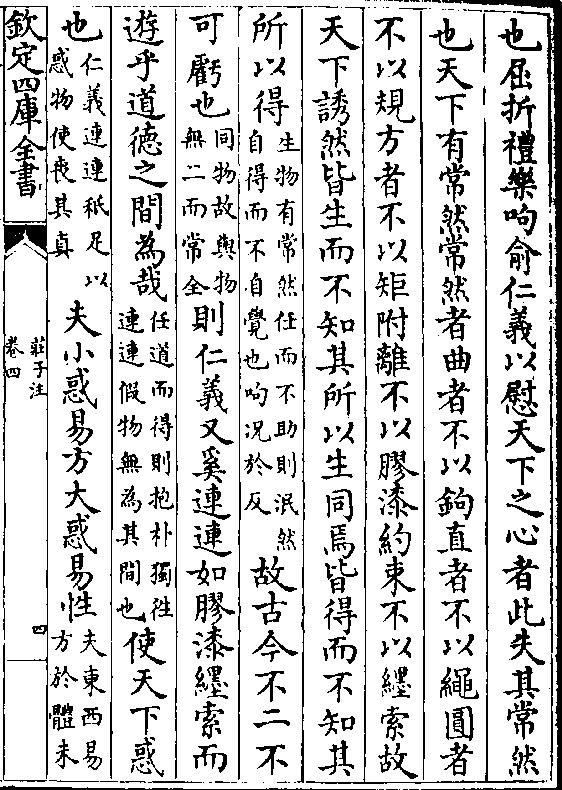 也屈折禮樂呴俞仁義以慰天下之心者此失其常然
也天下有常然常然者曲者不以鉤直者不以繩圓者
不以規方者不以矩附離不以膠漆約束不以纆索故
天下誘然皆生而不知其所以生同焉皆得而不知其
所以得生物有常然任而不助則泯然自得而不自覺也呴况於反故古今不二不
可虧也同物故與物無二而常全則仁義又奚連連如膠漆纆索而
遊乎道德之間為哉任道而得則抱朴獨徃連連假物無為其間也使天下惑
也仁義連連秖足以惑物使喪其真夫小惑易方大惑易性夫東西易方於體未
欽定四庫全書
莊子注
卷四
四